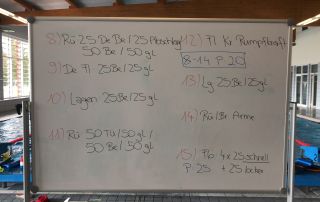 8) Rü 25 De Be / 25 Abschlag
50 Be / 50 gL
9) De Fl 25 Be / 25 gL
10) Lagen 25 Be / 25 gL
11) Rü 50 TÜ / 50 gL /
50 Be / 50 gL
12) Fl Kr Rumpfkraft
8-14 P 20
13) Lg 25 Be / 25 gL
14) Rü/Br Arme
15) 4 x 25 schnell
P 25 + 25 locker